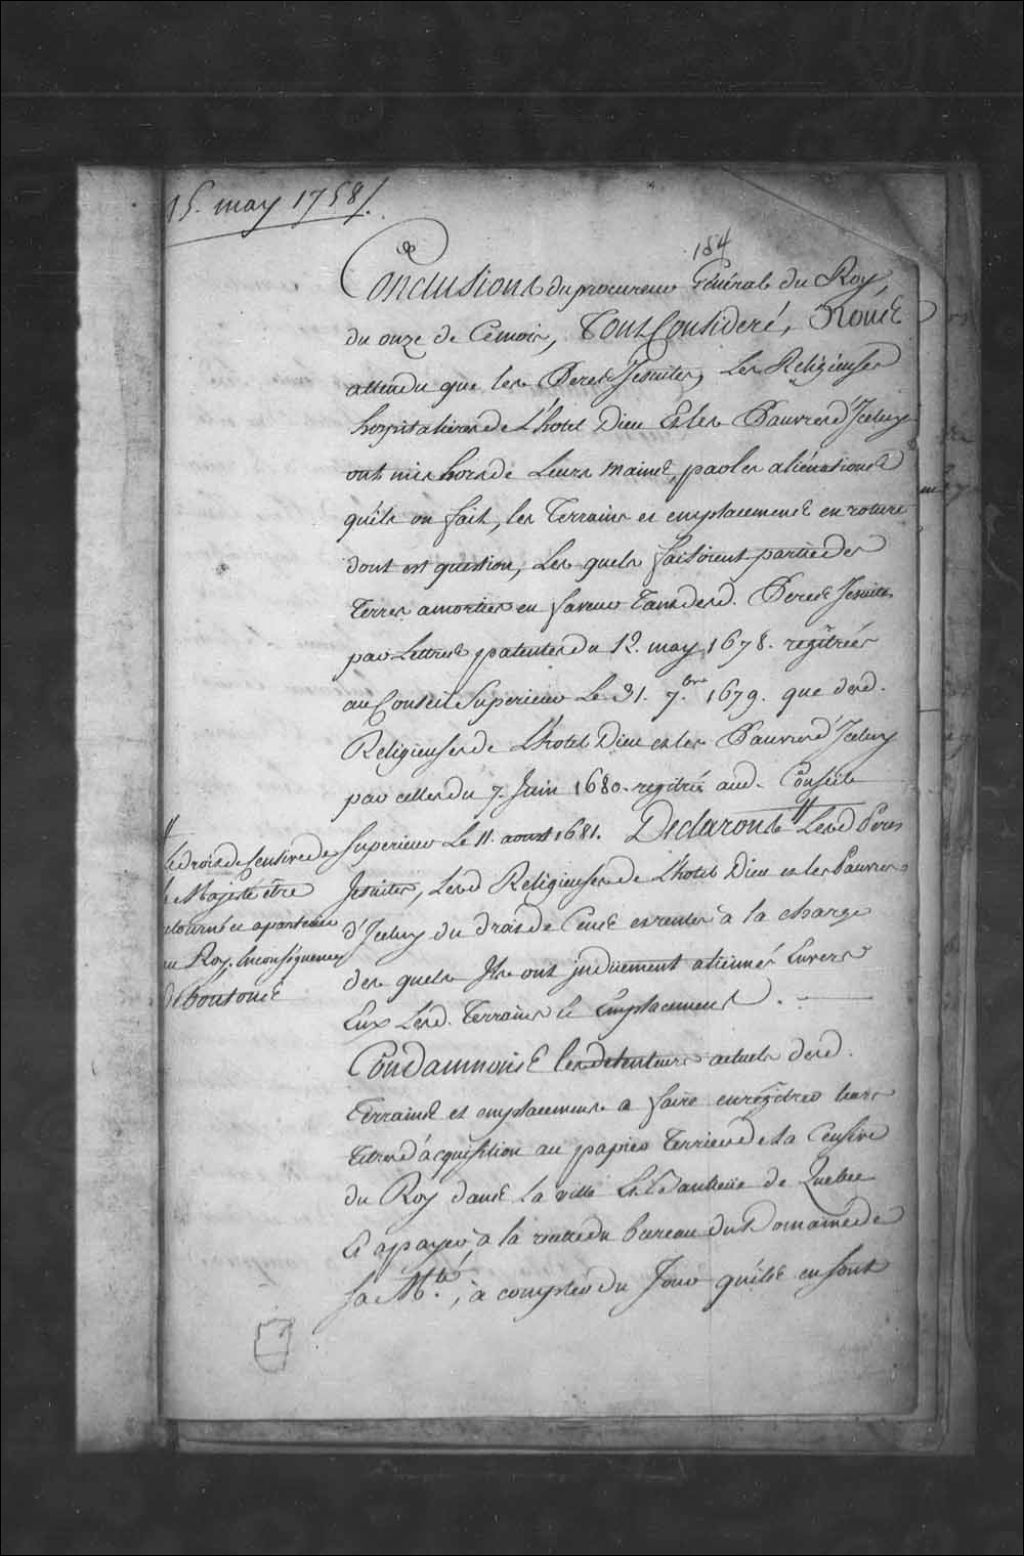 15. may 1758/.
184
& Conclusions du procureur Général du Roy,
du onze de Ce mois, Tout Consideré, Nous
attendu que les Peres Jesuites, Les Religieuses
hospitalieres de L'hotel Dieu Et les Pauvres d'Jceluy
ont mis hors de Leurs mains, par les aliénations
qu'ils on fait, les Terrains et emplacemens en roture
dont est question, Les quels faisoient partie des
Terres amorties en faveur tant desd. Peres Jesuites
par Lettres patentes du 12. may 1678. regîtrées
au Conseil Superieur Le 31. 7.bre 1679. que desd.
Religieuses de L'hotel Dieu et les Pauvres d'Jceluy
par celles du 7. Juin 1680. regitrés aud. Conseil
Superieur Le 11. aoust 1681. Declarons // Lesd Peres
Jesuites, Lesd Religieuses de L'hotel Dieu et les Pauvres
d'Jceluy du droit de Cens et rentes à la charge
des quels Jls ont induement aliénnés Envers
Eux Lesd. Terrains & Emplacemens.
Condamnons les detenteurs actuels desd.
Terrains et emplacemens a faire enregîtrer leurs
titres d'acquisition au papier Terrier de la Censive
du Roy dans la ville Et Banlieüe de Quebec
& a payer à la recette du bureau du Domaine de
sa M.té, à compter du Jour qu'ils en sont
//
le droit de Censive de
Majesté être
apartenir
au Roy, En conséquence
deboutons